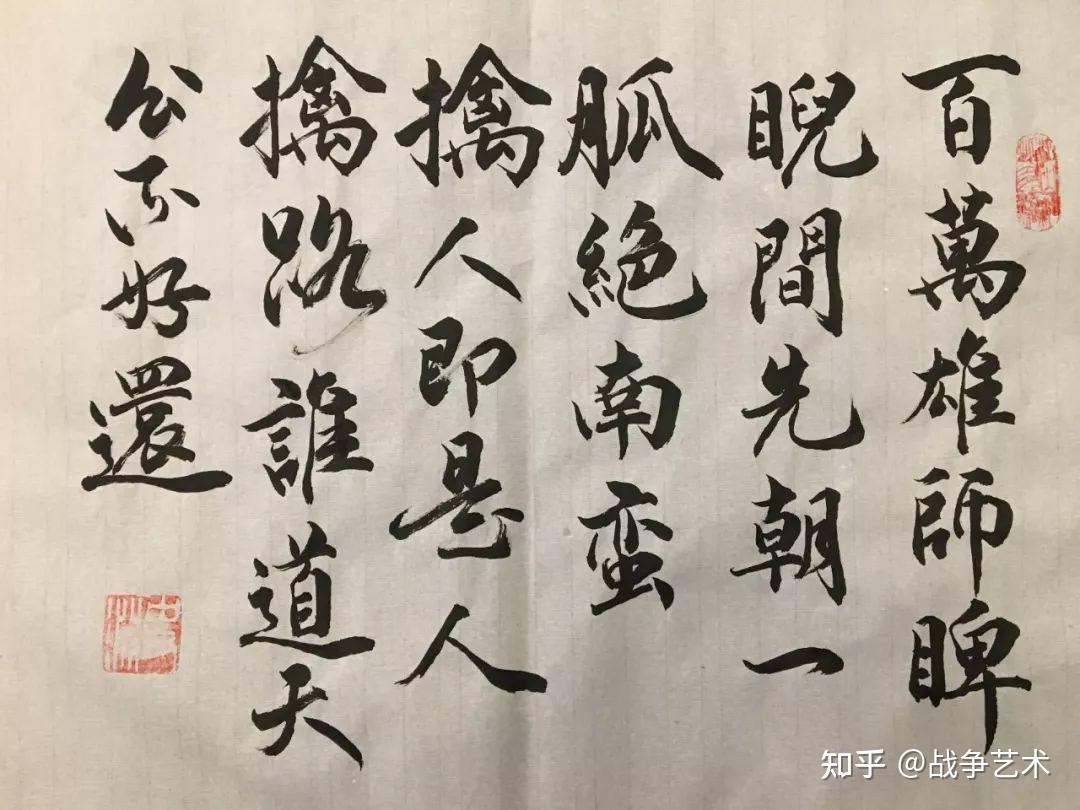 百萬雄師睥
睨間先朝一
胍絕南蛮
擒人即是人
擒路誰道天
公不好還
知乎 @战争艺术